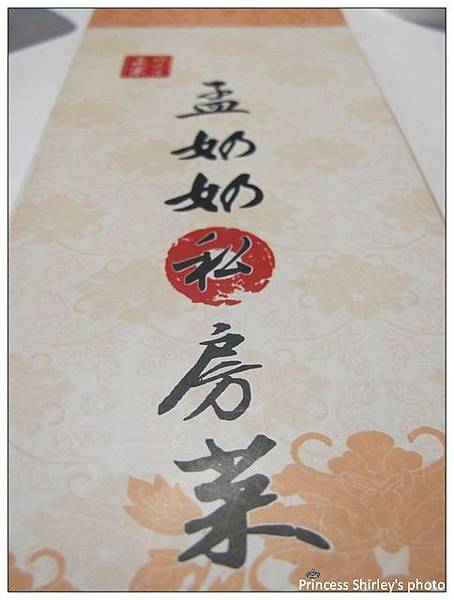 孟奶奶私房菜
Princess Shirley's photo